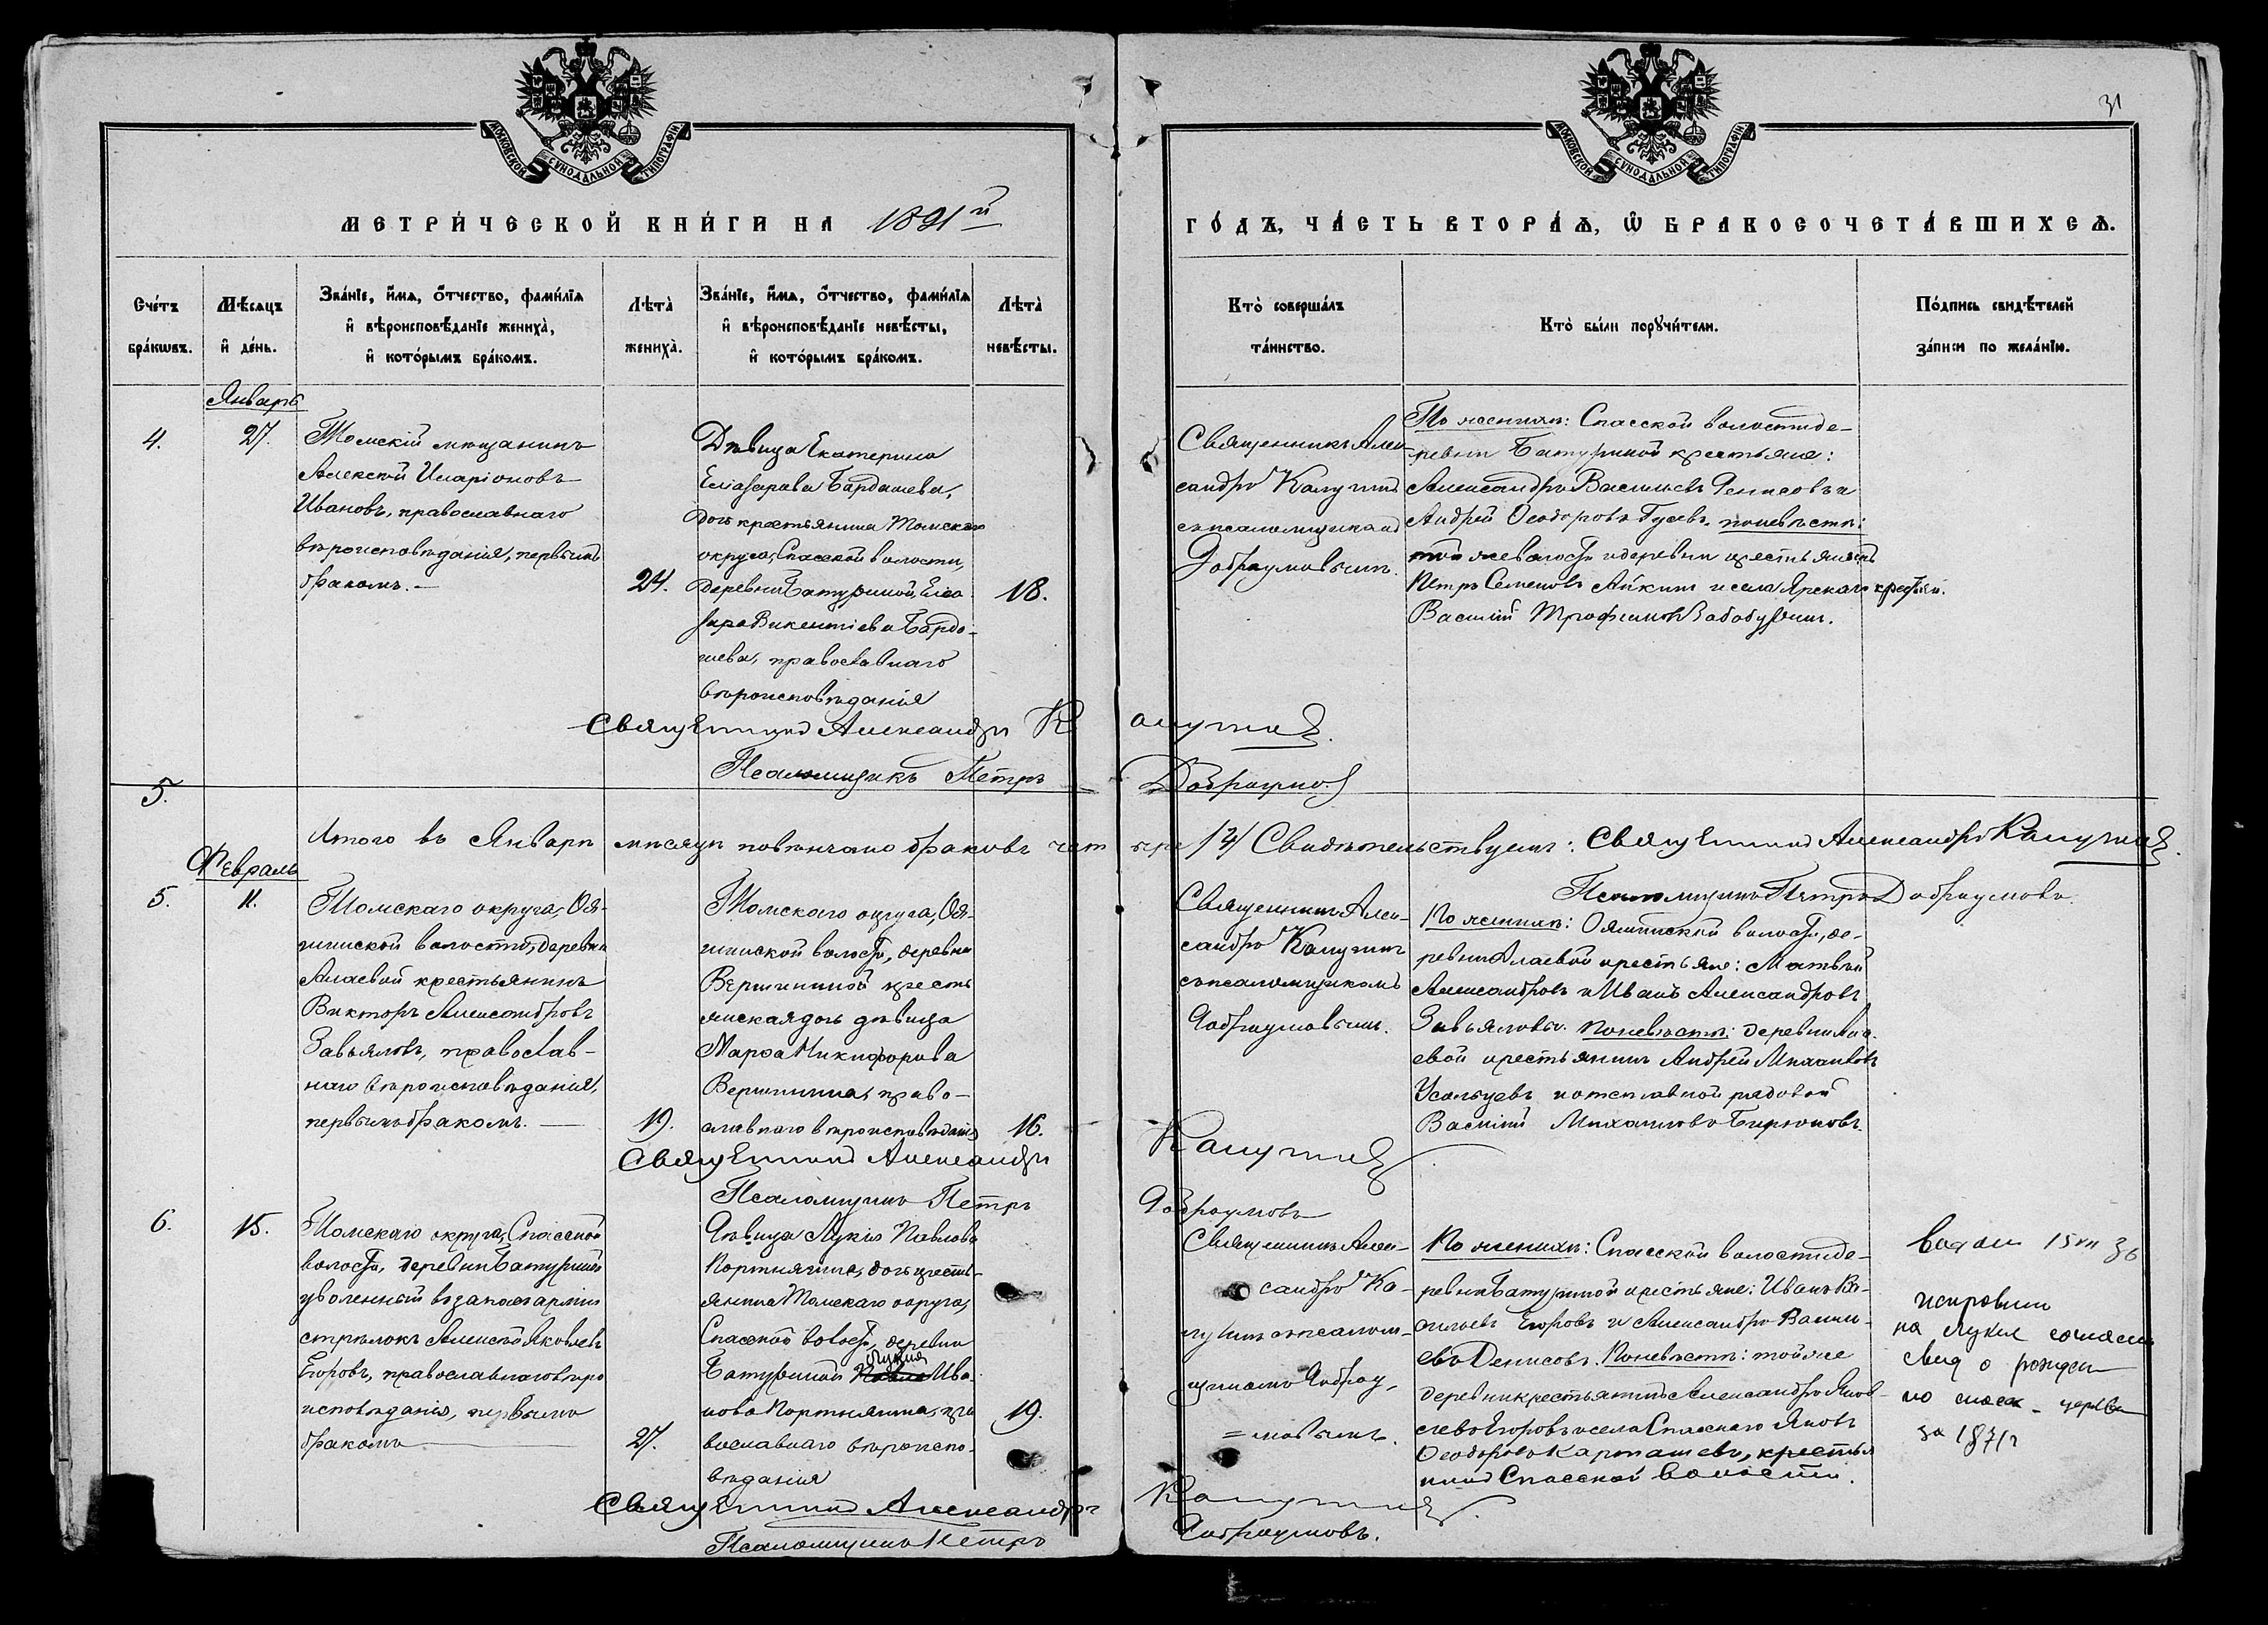 31
МОСКОВСКОЙ СѴНОДАЛЬНОЙ ТИПОГРАФІИ
МОСКОВСКОЙ СѴНОДАЛЬНОЙ ТИПОГРАФІИ
МЕТРИ́ЧЕСКОЙ КНИ́ГИ НА 1891й
ГО́ДЪ, ЧА́СТЬ ВТОРА́Ѧ, Ѽ БРАКОСОЧЕТА́ВШИХСѦ.
Сче́тъ
бра́кѡвъ.
Мѣ́сяцъ
и҆ де́нь.
Зва́нїе, и҆́мѧ, ѻ҆́тчество, фами́лїѧ
и҆ вѣроисповѣ́данїе жениха̀,
и҆ кото́рымъ бра́комъ.
Лѣта̀
жениха̀.
Зва́нїе, и҆́мѧ, ѻ҆́тчество, фами́лїѧ
и҆ вѣроисповѣ́данїе невѣ́сты,
и҆ кото́рымъ бра́комъ.
Лѣта̀
невѣ́сты.
Кто̀ соверша́лъ
та́инство.
Кто̀ бы́ли порꙋчи́тели.
По́дпись свидѣ́телей
за́писи по жела́нїю.
Январь
4.
27.
Томскій мѣщанинъ
Алексѣй Иларіоновъ
Ивановъ, православнаго
вѣроисповѣданія, первымъ
бракомъ. —
24.
Дѣвица Екатерина
Еліазарова Бардашева,
дочь крестьянина Томскаго
округа, Спасской волости,
деревни Батуриной, Еліа
зара Викентіева Барда-
шева, православнаго
вѣроисповѣданія
18.
Священникъ Алек-
сандръ Калугинъ
съ псаломщикомъ
Добраумовымъ.
По женихѣ: Спасской волости де-
ревни Батуриной крестьяне:
Александръ Васильевъ Денисовъ и
Андрей Ѳеодоровъ Гусевъ. по невѣстѣ:
той же волости и деревни крестьянинъ
Петръ Семеновъ Айкинъ и села Ярскаго крестьян.
Василій Трофимовъ
Священникъ Александръ Калугинъ.
Псаломщикъ Петръ Добраумов
5.
Итого въ Январѣ мѣсяцѣ повѣнчано браковъ четыре /4/ Свидѣтельствуемъ: Священникъ Александръ Калугинъ.
Псаломщикъ Петръ Добраумовъ.
Февраль
5.
11.
Томскаго округа, Оя-
шинской волости, деревни
Алаевой крестьянинъ
Викторъ Александровъ
Завьяловъ, православ-
наго вѣроисповѣданія,
первымъ бракомъ. —
19.
Томскаго округа, Оя-
шинской волости, деревни
Вершининой кресть
янская дочь дѣвица
Марѳа Никифорова
Вершинина, право-
славнаго вѣроисповѣданія
16.
Священникъ Алек-
сандръ Калугинъ
съ псаломщикомъ
Добраумовымъ.
По женихѣ: Ояшинской волости, де-
ревни Алаевой крестьяне: Матвѣй
Александровъ и Иванъ Александровъ
Завьяловы. по невѣстѣ: деревни Ала-
евой крестьянинъ Андрей Михаиловъ
Усольцевъ и отставной рядовой
Василій Михаиловъ Бирюковъ.
Священникъ Александръ Калугинъ
Псаломщикъ Петръ Добраумовъ
6.
15.
Томскаго округа, Спасской
волости, деревни Батуриной
уволенный въ запасъ арміи
стрѣлокъ Алексѣй Яковлевъ
Егоровъ, православнаго вѣро
исповѣданія, первымъ
бракомъ —
27.
Дѣвица Лукія Павлова
Портнягина, дочь кресть-
янина Томскаго округа,
Спасской волости, деревни
Лукія
Батуриной Павла Ива-
нова Портнягина, пра
вославнаго вѣроиспо-
вѣданія
19.
Священникъ Алек-
сандръ Ка-
лугинъ съ псалом-
щикомъ Добрау-
=мовымъ.
По женихѣ: Спасской волости де-
ревни Батуриной крестьяне: Иванъ Ва-
сильевъ Егоровъ и Александръ Василь-
евъ Денисовъ. По невѣстѣ: той же
деревни крестьянинъ Александръ Яков-
левъ Егоровъ и села Спасскаго Яковъ
Ѳеодоровъ Карташевъ, крестья
нинъ Спасской волости.
выдан 15 VII 36
исправлен
на Лукия согласно
свид о рожден
по спасск – церкви
за 1871 г
Священникъ Александръ Калугинъ.
Псаломщикъ Петръ Добраумовъ.